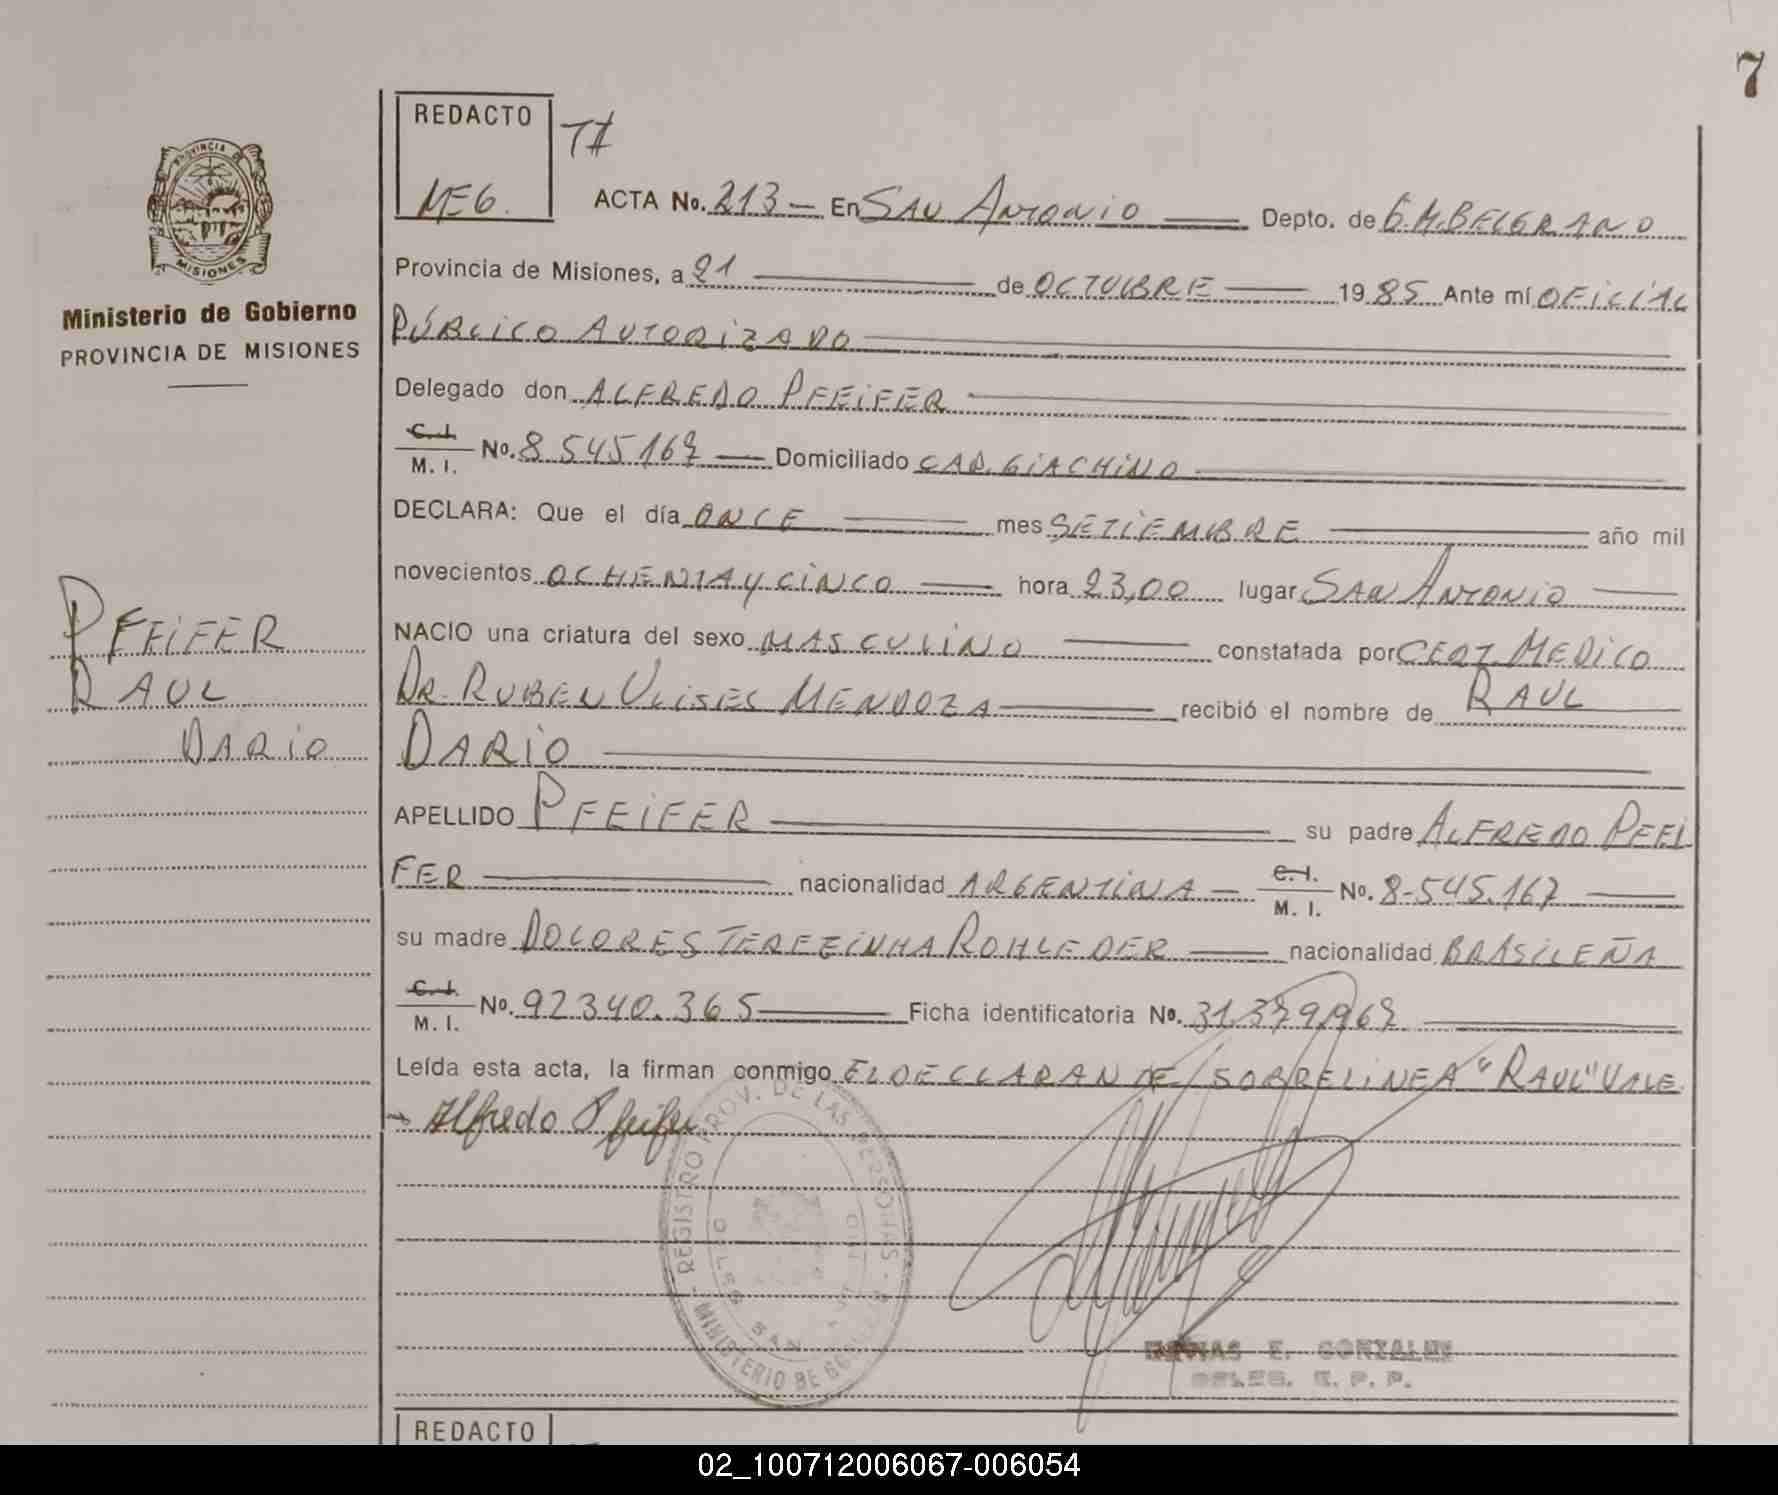 7
REDACTO
MEG.
ACTA No. 213 — En SAN ANTONIO — Depto. de G.M.BELGRANO
PROVINCIA DE MISIONES
Ministerio de Gobierno
PROVINCIA DE MISIONES
Provincia de Misiones, a 21 — de OCTUBRE — 1985 Ante mí OFICIAL
PÚBLICO AUTORIZADO
Delegado don ALFREDO PFEIFER
C.I. M. I. No. 8 545 167 — Domiciliado CAB. GIACHINO
DECLARA: Que el día ONCE — mes SETIEMBRE — año mil
novecientos OCHENTA Y CINCO — hora 23,00 lugar SAN ANTONIO —
NACIO una criatura del sexo MASCULINO — constatada por CERT. MEDICO
DR. RUBEN ULISES MENDOZA — recibió el nombre de RAUL
DARIO
APELLIDO PFEIFER — su padre ALFREDO PFEI
FER — nacionalidad ARGENTINA — C.I. M. I. No. 8-545.167 —
su madre DOLORES TEREZINHA ROHLEDER — nacionalidad BRASILEÑA
C.I. M. I. No. 92340.365 — Ficha identificatoria No. 31.379.967
Leída esta acta, la firman conmigo EL DECLARANTE/SOBRELINEA "RAUL" VALE.
Alfredo Pfeifer
PFEIFER
RAUL
DARIO
REGISTRO PROV. DE LAS PERSONAS - MINISTERIO DE GOBIERNO
E. GONZALEZ
DELEG. R. P. P.
REDACTO
02_100712006067-006054